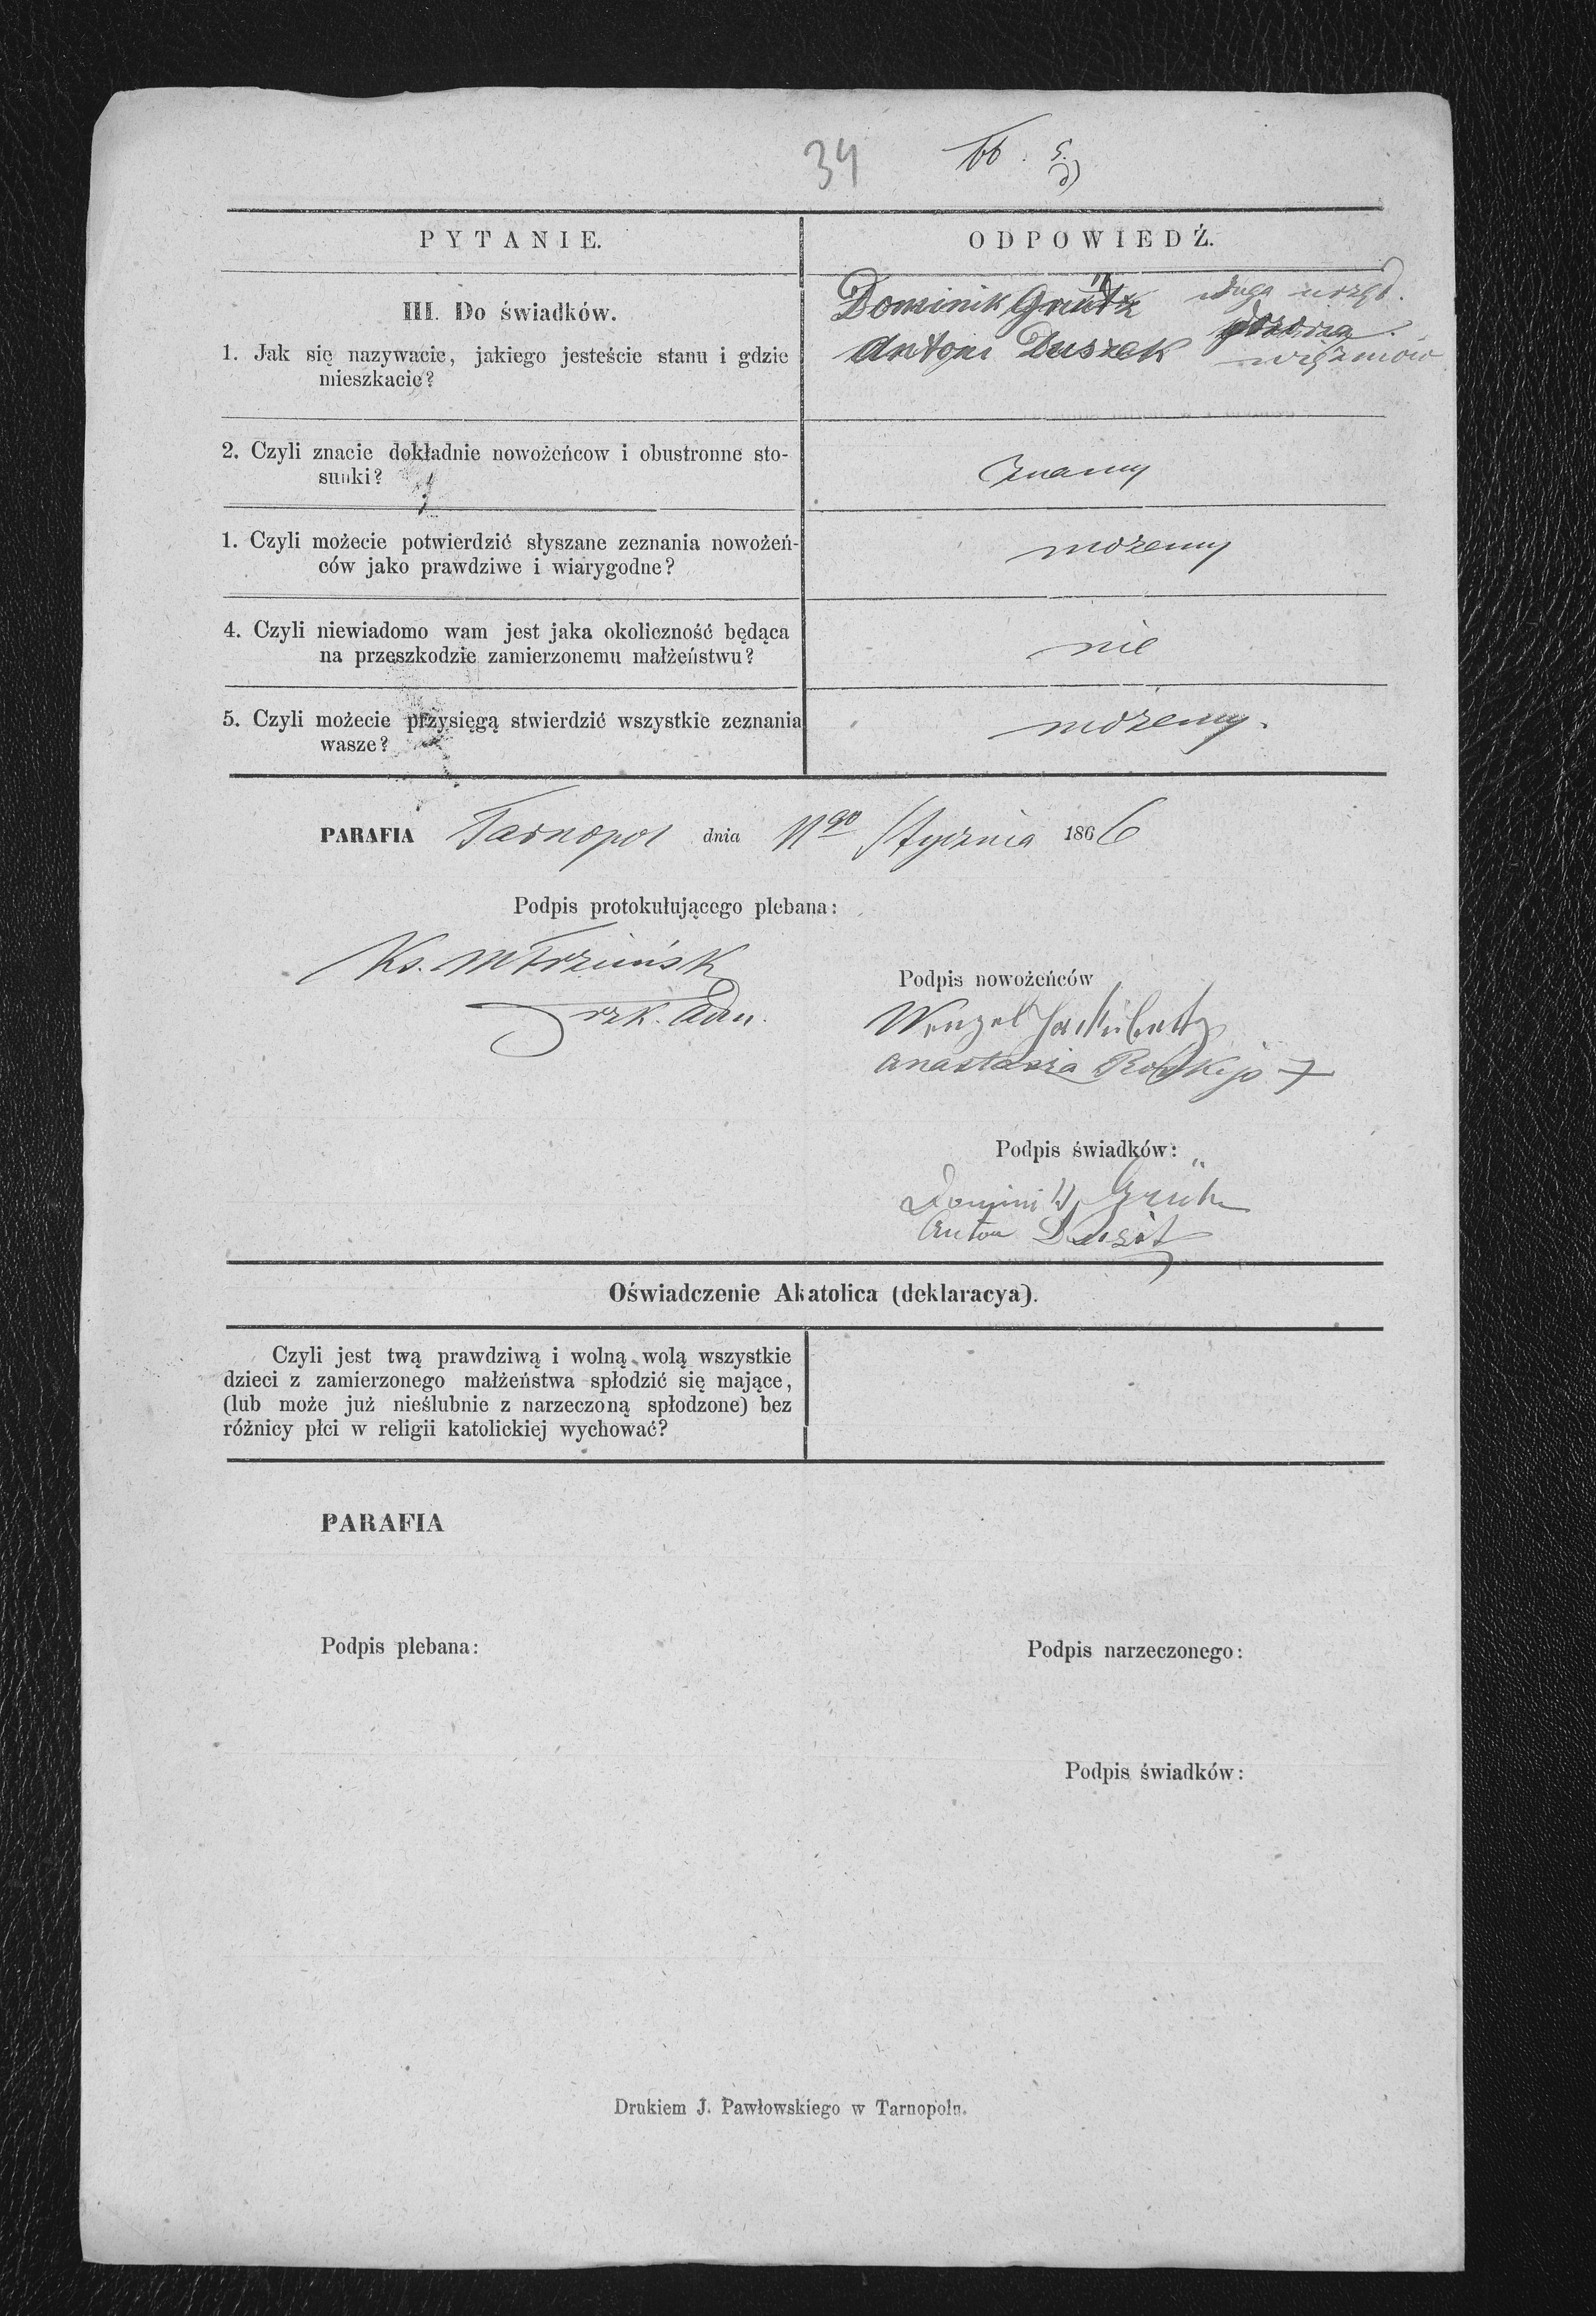 34
PYTANIE.
ODPOWIEDŹ.
III. Do świadków.
1. Jak się nazywacie, jakiego jesteście stanu i gdzie
mieszkacie?
Dominik Grütz sługa urzęd.
Antoni Duszek dozorca
więzniów
2. Czyli znacie dokładnie nowożeńcow i obustronne sto-
sunki?
Znamy
1. Czyli możecie potwierdzić słyszane zeznania nowożeń-
ców jako prawdziwe i wiarygodne?
możemy
4. Czyli niewiadomo wam jest jaka okoliczność będąca
na przeszkodzie zamierzonemu małżeństwu?
nie
5. Czyli możecie przysięgą stwierdzić wszystkie zeznania
wasze?
możemy.
PARAFIA Tarnopol dnia 11go Stycznia 1866
Podpis protokułującego plebana:
Ks.
rzk. Adm.
Podpis nowożeńców
Wenzel
Anastazia
Podpis świadków:
Dominik Grütz
Anton
Oświadczenie Akatolica (deklaracya).
Czyli jest twą prawdziwą i wolną wolą wszystkie
dzieci z zamierzonego małżeństwa spłodzić się mające,
(lub może już nieślubnie z narzeczoną spłodzone) bez
różnicy płci w religii katolickiej wychować?
PARAFIA
Podpis plebana:
Podpis narzeczonego:
Podpis świadków:
Drukiem J. Pawłowskiego w Tarnopolu.